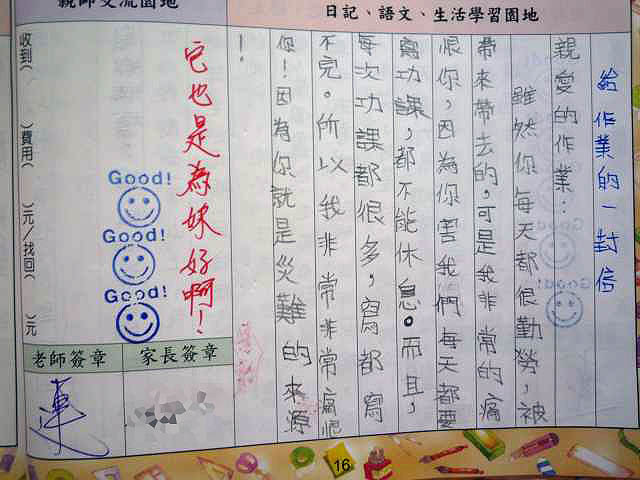 日記、語文、生活學習園地
給作業的一封信
親愛的作業：
雖然你每天都很勤勞，被
帶來帶去的，可是我非常的痛
恨你，因為你害我們每天都要
寫功課，都不能休息。而且，
每次功課都很多，寫都寫
不完。所以我非常非常痛恨
你！因為你就是災難的來源
！
親師交流園地
它也是為妹好啊！
Good!
Good!
Good!
收到(　)費用(　)元/找回(　)元
家長簽章
老師簽章
連
16